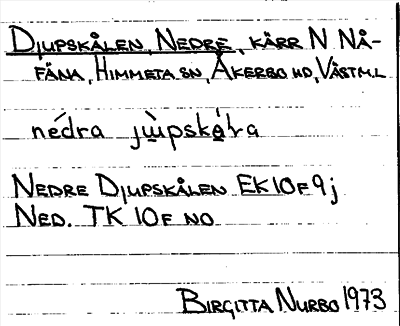 DJUPSKÅLEN, NEDRE, KÄRR N NÅ-
FÄNA, HIMMETA SN, ÅKERBO HD, VÄSTM.L
nédra jẁpskǫ́lra
NEDRE DJUPSKÅLEN EK 10F 9j
NED. TK 10F NO
BIRGITTA NURBO 1973